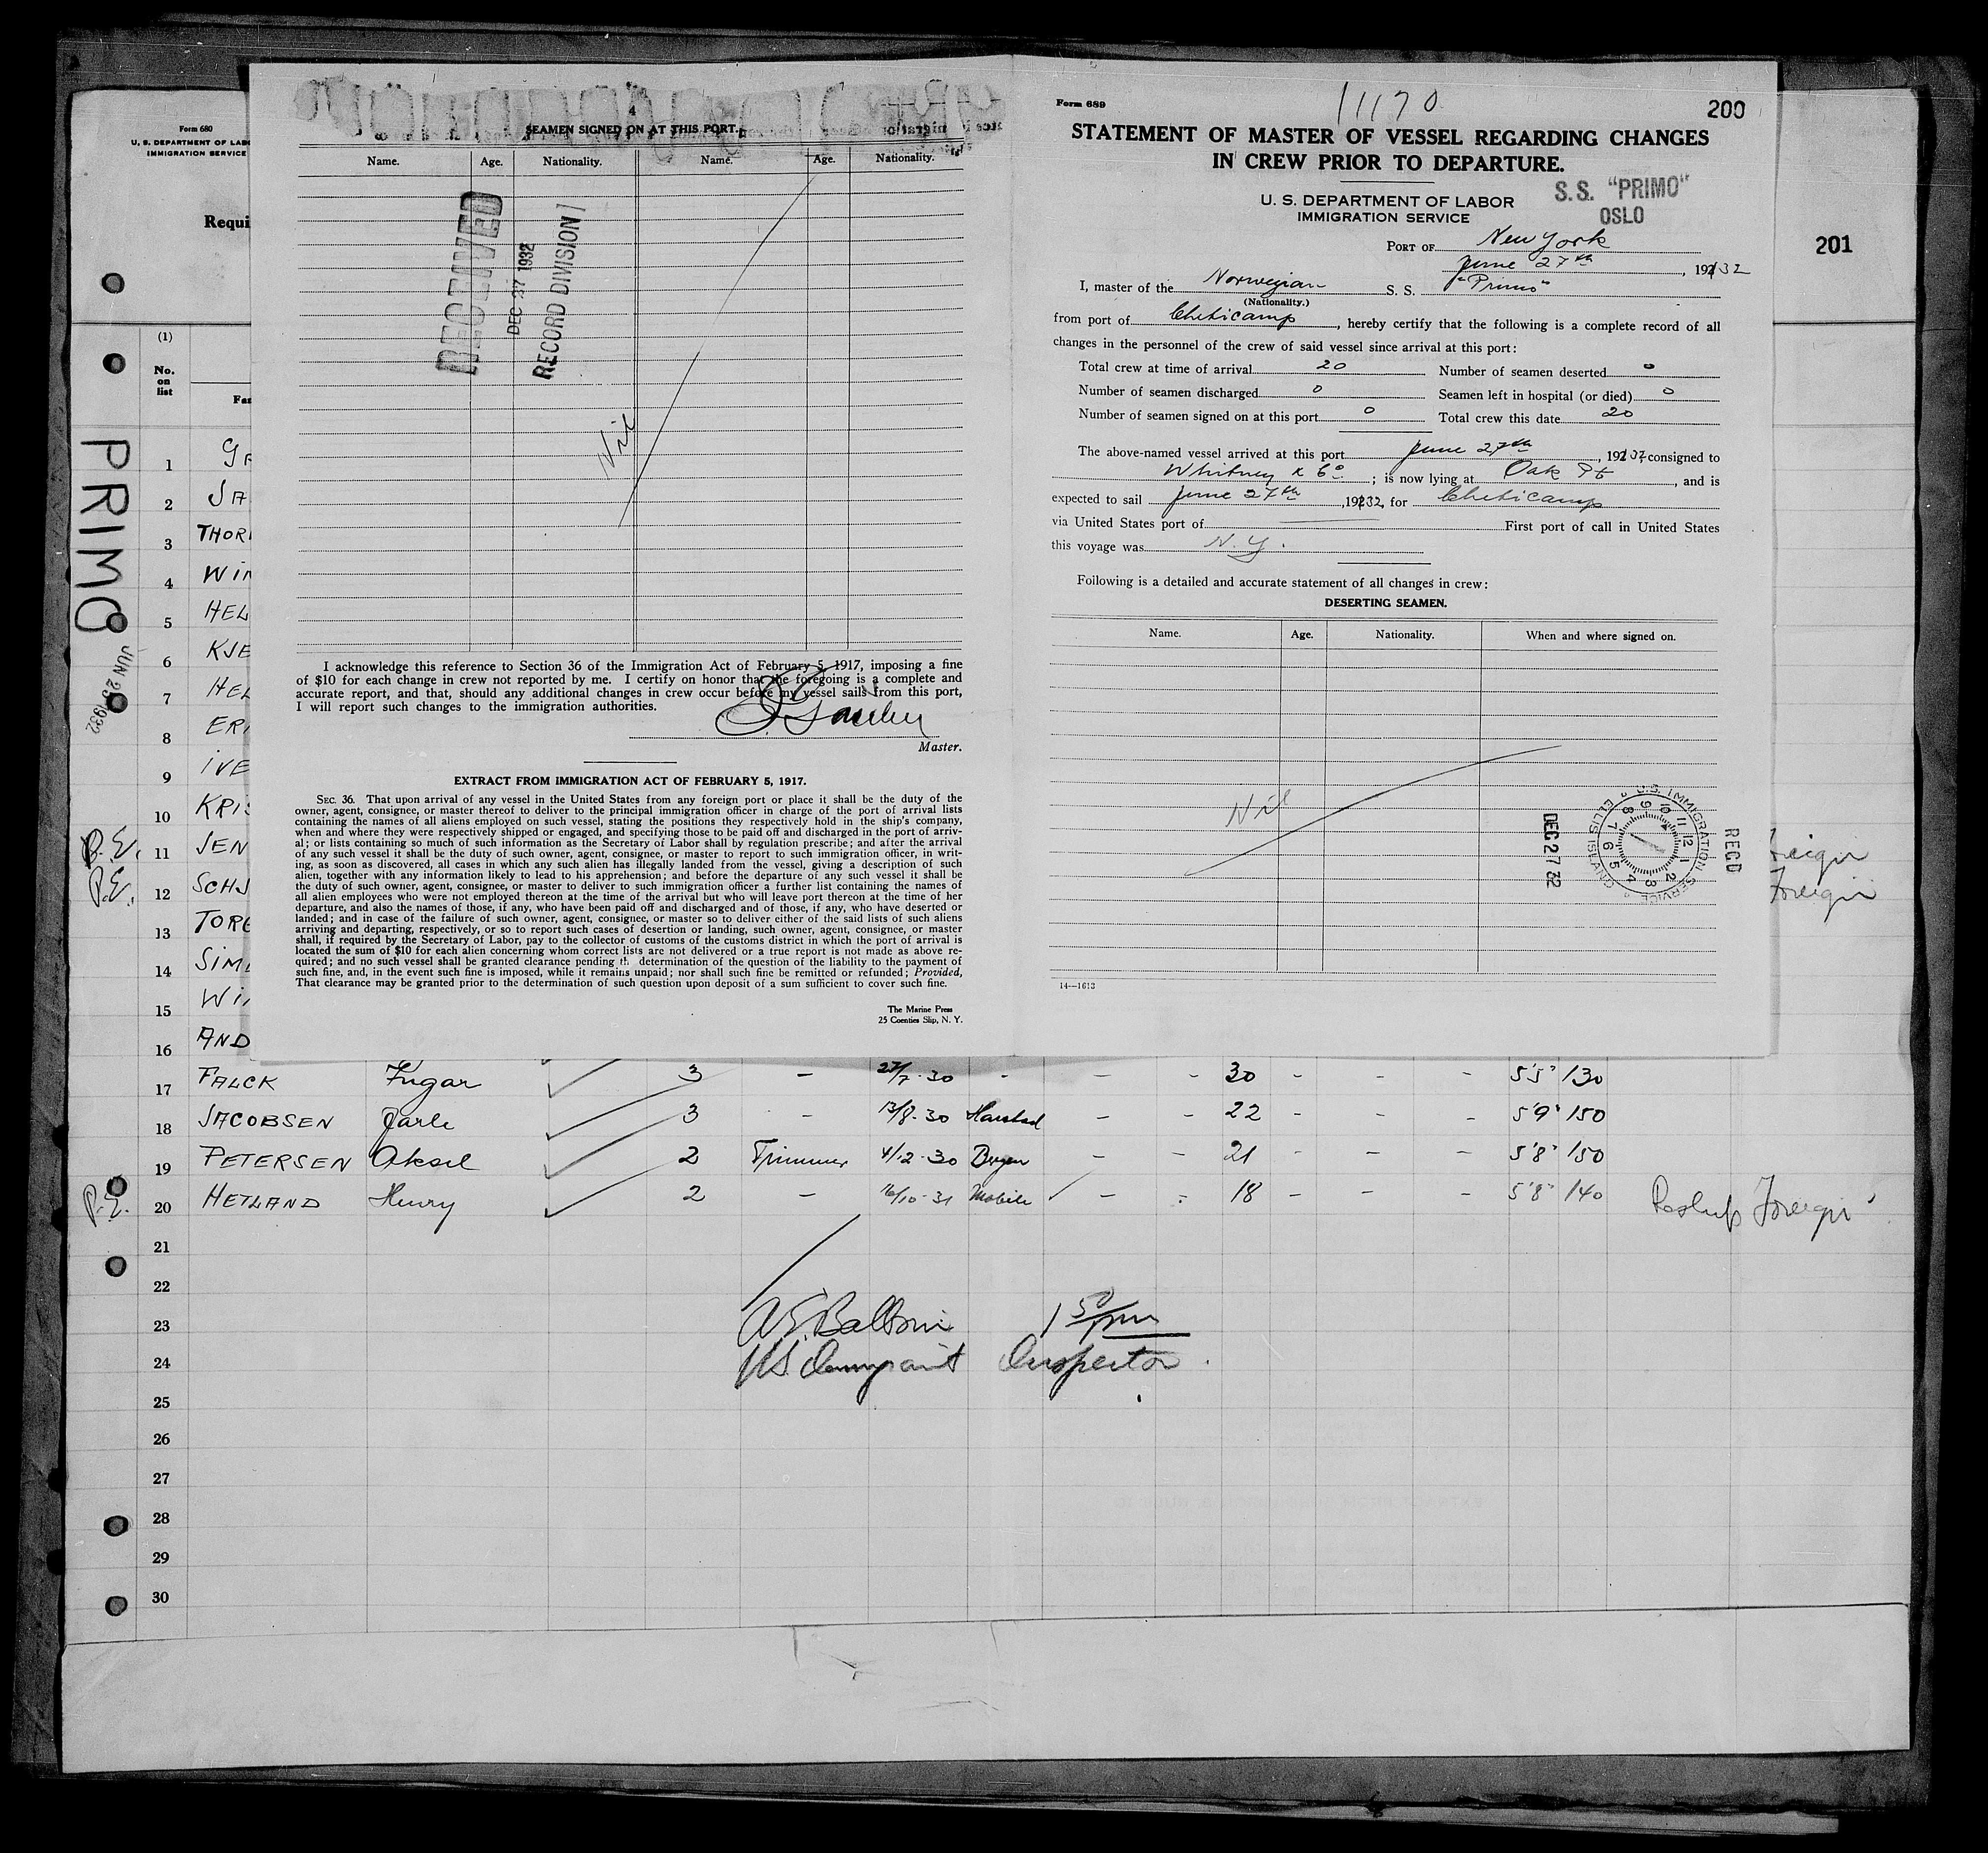 Form 680
U. S. DEPARTMENT OF LAB
IMMIGRATION SERVICE
Requi
201
(1)
No.
on
list
PRIMO
JUN 29 1932
4
SEAMEN SIGNED ON AT THIS PORT.
Name. Age. Nationality. Name. Age. Nationality.
RECEIVED
DEC 27 1932
RECORD DIVISION
Nil
I acknowledge this reference to Section 36 of the Immigration Act of February 5, 1917, imposing a fine
of $10 for each change in crew not reported by me. I certify on honor that the foregoing is a complete and
accurate report, and that, should any additional changes in crew occur before my vessel sails from this port,
I will report such changes to the immigration authorities.
Master.
EXTRACT FROM IMMIGRATION ACT OF FEBRUARY 5, 1917.
SEC. 36. That upon arrival of any vessel in the United States from any foreign port or place it shall be the duty of the
owner, agent, consignee, or master thereof to deliver to the principal immigration officer in charge of the port of arrival lists
containing the names of all aliens employed on such vessel, stating the positions they respectively hold in the ship's company,
when and where they were respectively shipped or engaged, and specifying those to be paid off and discharged in the port of arriv-
al; or lists containing so much of such information as the Secretary of Labor shall by regulation prescribe; and after the arrival
of any such vessel it shall be the duty of such owner, agent, consignee, or master to report to such immigration officer, in writ-
ing, as soon as discovered, all cases in which any such alien has illegally landed from the vessel, giving a description of such
alien, together with any information likely to lead to his apprehension; and before the departure of any such vessel it shall be
the duty of such owner, agent, consignee, or master to deliver to such immigration officer a further list containing the names of
all alien employees who were not employed thereon at the time of the arrival but who will leave port thereon at the time of her
departure, and also the names of those, if any, who have been paid off and discharged and of those, if any, who have deserted or
landed; and in case of the failure of such owner, agent, consignee, or master so to deliver either of the said lists of such aliens
arriving and departing, respectively, or so to report such cases of desertion or landing, such owner, agent, consignee, or master
shall, if required by the Secretary of Labor, pay to the collector of customs of the customs district in which the port of arrival is
located the sum of $10 for each alien concerning whom correct lists are not delivered or a true report is not made as above re-
quired; and no such vessel shall be granted clearance pending th determination of the question of the liability to the payment of
such fine, and, in the event such fine is imposed, while it remains unpaid; nor shall such fine be remitted or refunded; Provided,
That clearance may be granted prior to the determination of such question upon deposit of a sum sufficient to cover such fine.
The Marine Press
25 Coenties Slip, N. Y.
Form 689
11170
200
STATEMENT OF MASTER OF VESSEL REGARDING CHANGES
IN CREW PRIOR TO DEPARTURE.
U. S. DEPARTMENT OF LABOR
IMMIGRATION SERVICE
S.S. "PRIMO"
OSLO
PORT OF New York
June 27th, 1932
I, master of the Norwegian S. S. "Primo"
(Nationality.)
from port of Cheticamp, hereby certify that the following is a complete record of all
changes in the personnel of the crew of said vessel since arrival at this port:
Total crew at time of arrival 20 Number of seamen deserted 0
Number of seamen discharged 0 Seamen left in hospital (or died) 0
Number of seamen signed on at this port 0 Total crew this date 20
The above-named vessel arrived at this port June 27th, 1932, consigned to
Whitney & Co; is now lying at Oak Pt, and is
expected to sail June 27th, 1932, for Cheticamp
via United States port of First port of call in United States
this voyage was N.Y.
Following is a detailed and accurate statement of all changes in crew:
DESERTING SEAMEN.
Name. Age. Nationality. When and where signed on.
Nil
DEC 27 32
U.S. IMMIGRATION SERVICE ELLIS ISLAND
REC'D
14—1613
1 GA
2 JA
3 THOR
4 WIN
5 HEL
6 KJE
7 HEL
8 ERI
9 IVE
10 KRIS
P.E. 11 JEN
P.E. 12 SCHJ Foreign
13 TORG
14 SIM
15 WI
16 AND
17 FALCK 3 - 27/7-30 - - - 30 - - - 5'5" 130
18 JACOBSEN Jarle 3 - 13/8-30 Harstad - - 22 - - - 5'9" 150
19 PETERSEN Aksel 2 Trimmer 4/12-30 Bergen - - 21 - - - 5'8" 150
P.E. 20 HETLAND Henry 2 - 16/10-31 Mobile - - 18 - - - 5'8" 140 Reship Foreign
21
22
23
24
U.S. Immigrant Inspector.
25
26
27
28
29
30